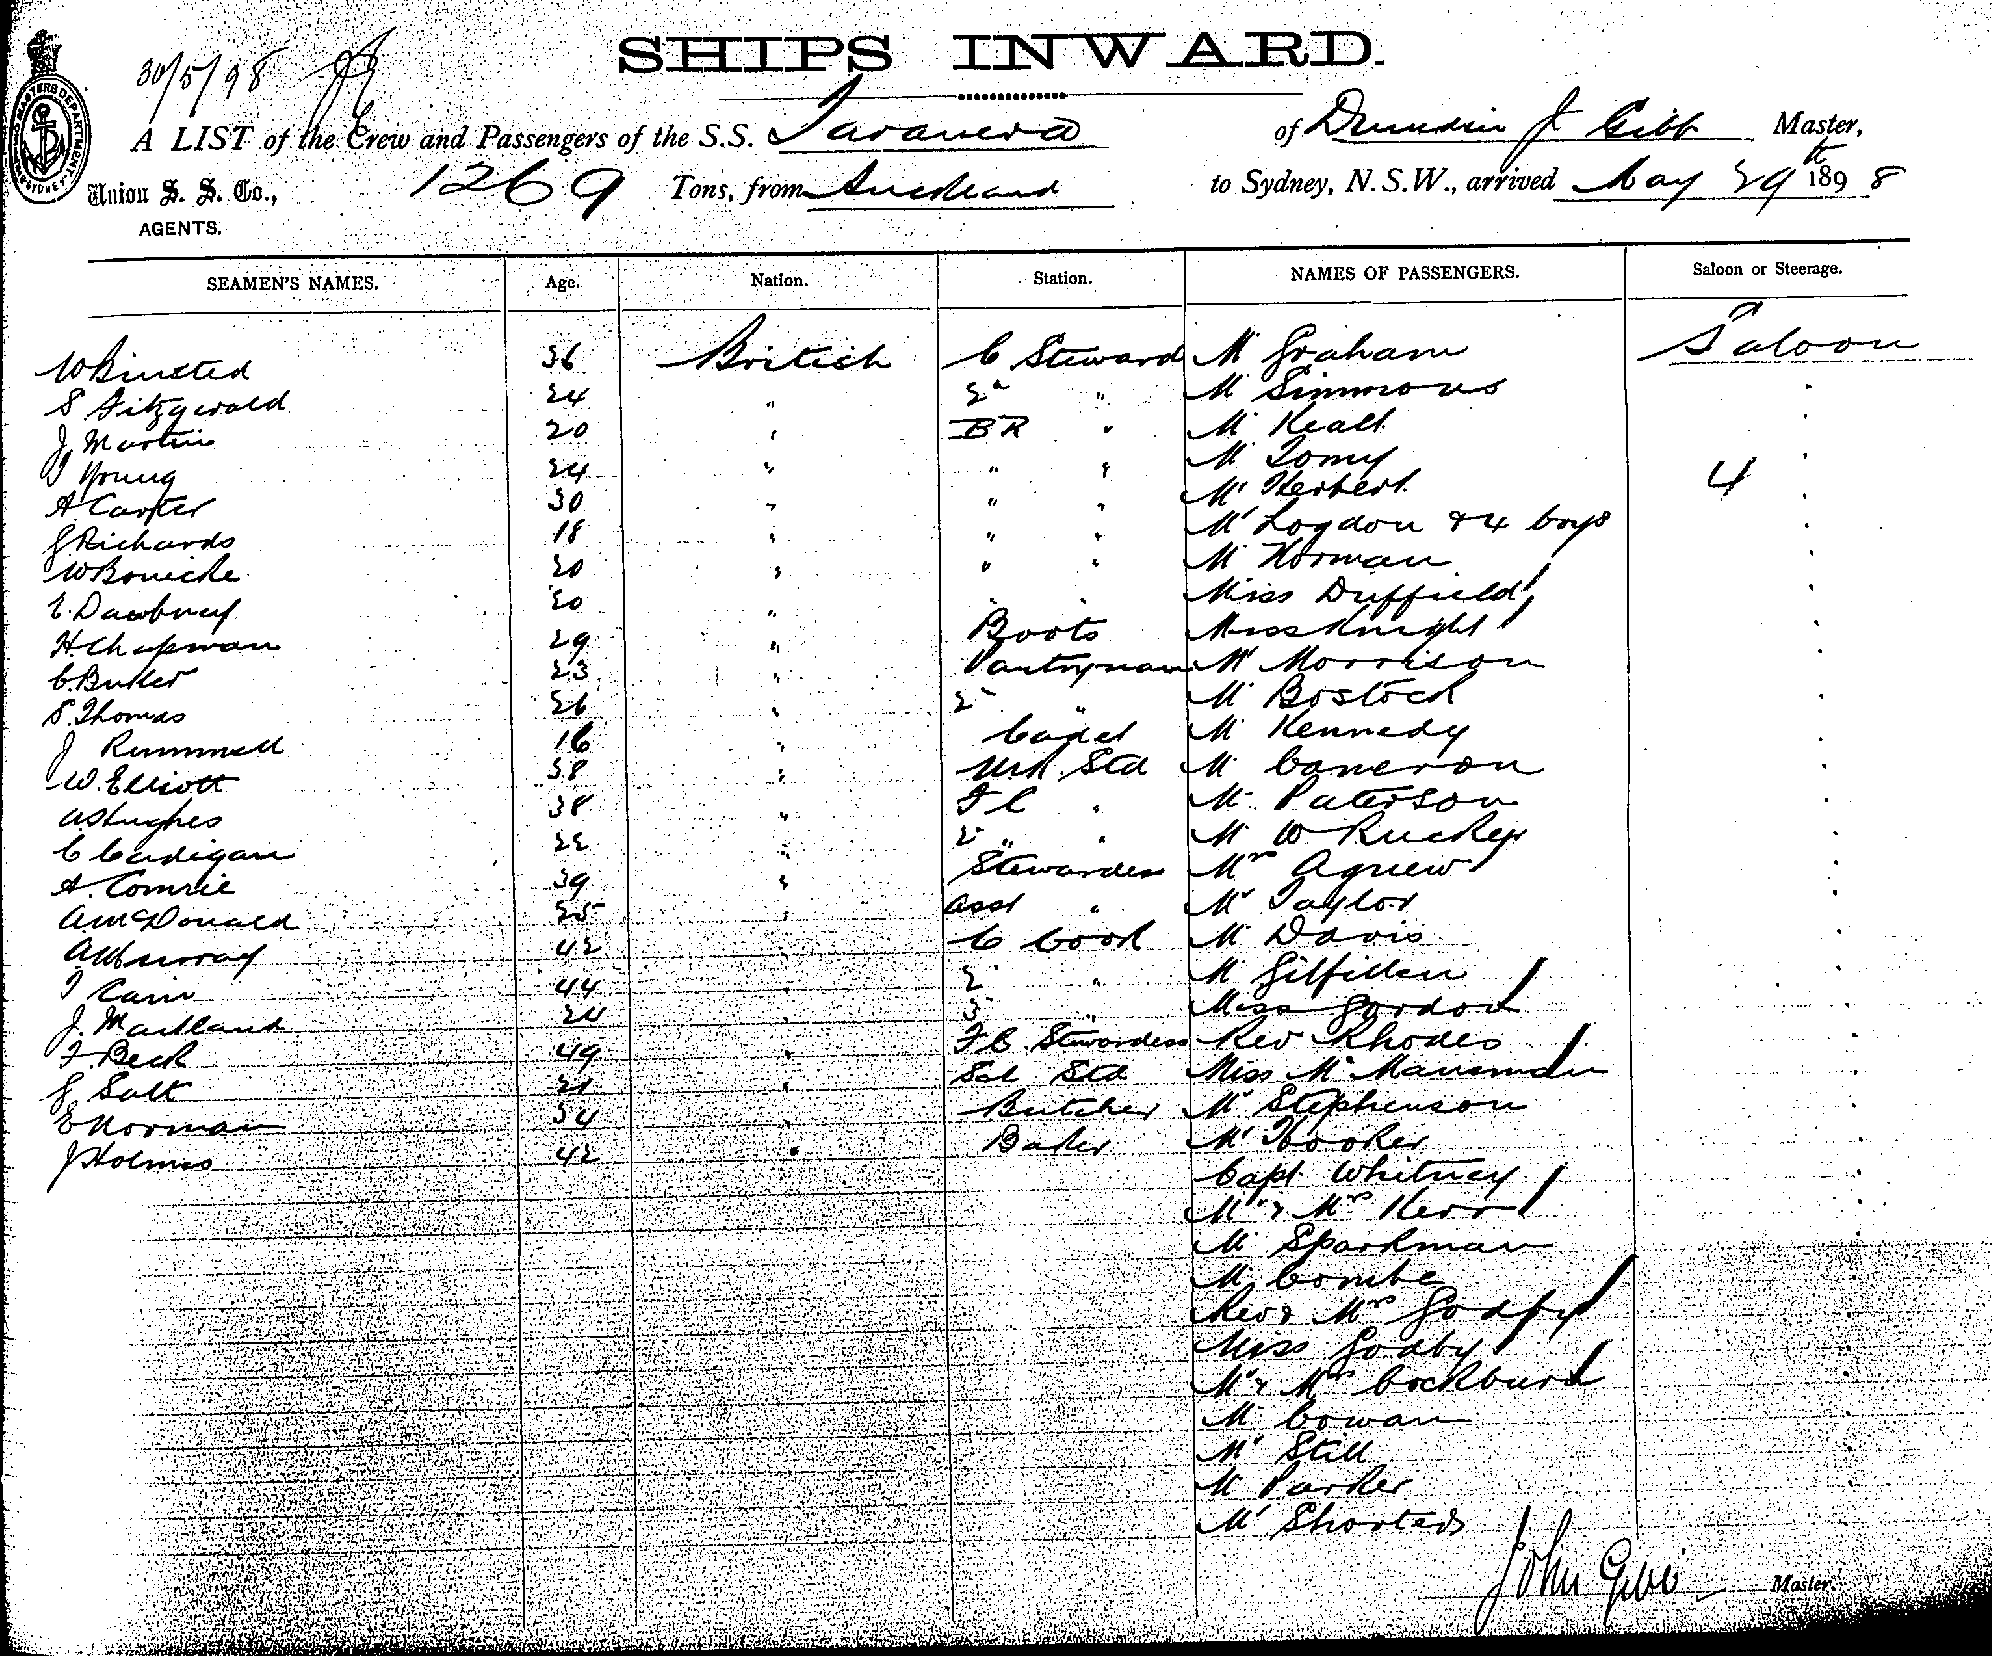 30/5/98
SHIPS INWARD.
A LIST of the Crew and Passengers of the S.S. Taranera of Dunedin J Gibb Master,
Union S. S. Co., 1269 Tons, from Auckland to Sydney, N.S.W., arrived May 29th 1898
AGENTS.
SEAMEN'S NAMES. Age. Nation. Station. NAMES OF PASSENGERS. Saloon or Steerage.
W Binsted 36 British C Steward Mr Graham Saloon
S Fitzgerald 24 " 2nd " Mr Simmons "
J Martin 20 " BR " Mr Keall "
Young 24 " " " Mr Tomy "
A Carter 30 " " " Mr Herbert 4 "
G Richards 18 " " " Mr Logdon & 4 boys "
W Bonicke 20 " " " Mr Norman "
E. Dawbney 20 " " " Miss Duffield "
H. Chapman 29 " Boots Miss Knight "
C. Butler 23 " Pantryman Mr Morrison "
S. Thomas 26 " 2nd " Mr Bostock "
J Rummell 16 " Cadet Mr Kennedy "
W. Elliott 38 " Std Mr Cameron "
A Hughes 38 " F C " Mr Paterson "
C Cardigan 22 " 2 " " Mr W Rucker "
A. Comrie 39 " Stewardess Mrs Agnew "
A McDonald 25 " Asst " Mr Taylor "
A Murray 42 " C Cook Mr Davis "
Cain 44 " 2 " Mr Gilfillen "
J. Maitland 24 " 3 " Miss Gordon "
F. Beck 49 " F C. Stewardess Rev Rhodes "
G Salt 21 " Sal Std Miss "
E Norman 34 " Butcher Mr Stephenson "
J Holmes 42 " Baker Mr Hooker "
Capt Whitney "
Mr & Mrs Kerr "
Mr Sparkman "
Mr Combe "
Rev & Mrs "
Miss Godby "
Mr & Mrs Cockburn "
Mr Cowan "
Mr Still "
Mr Parker "
Mr
John Gibb Master.